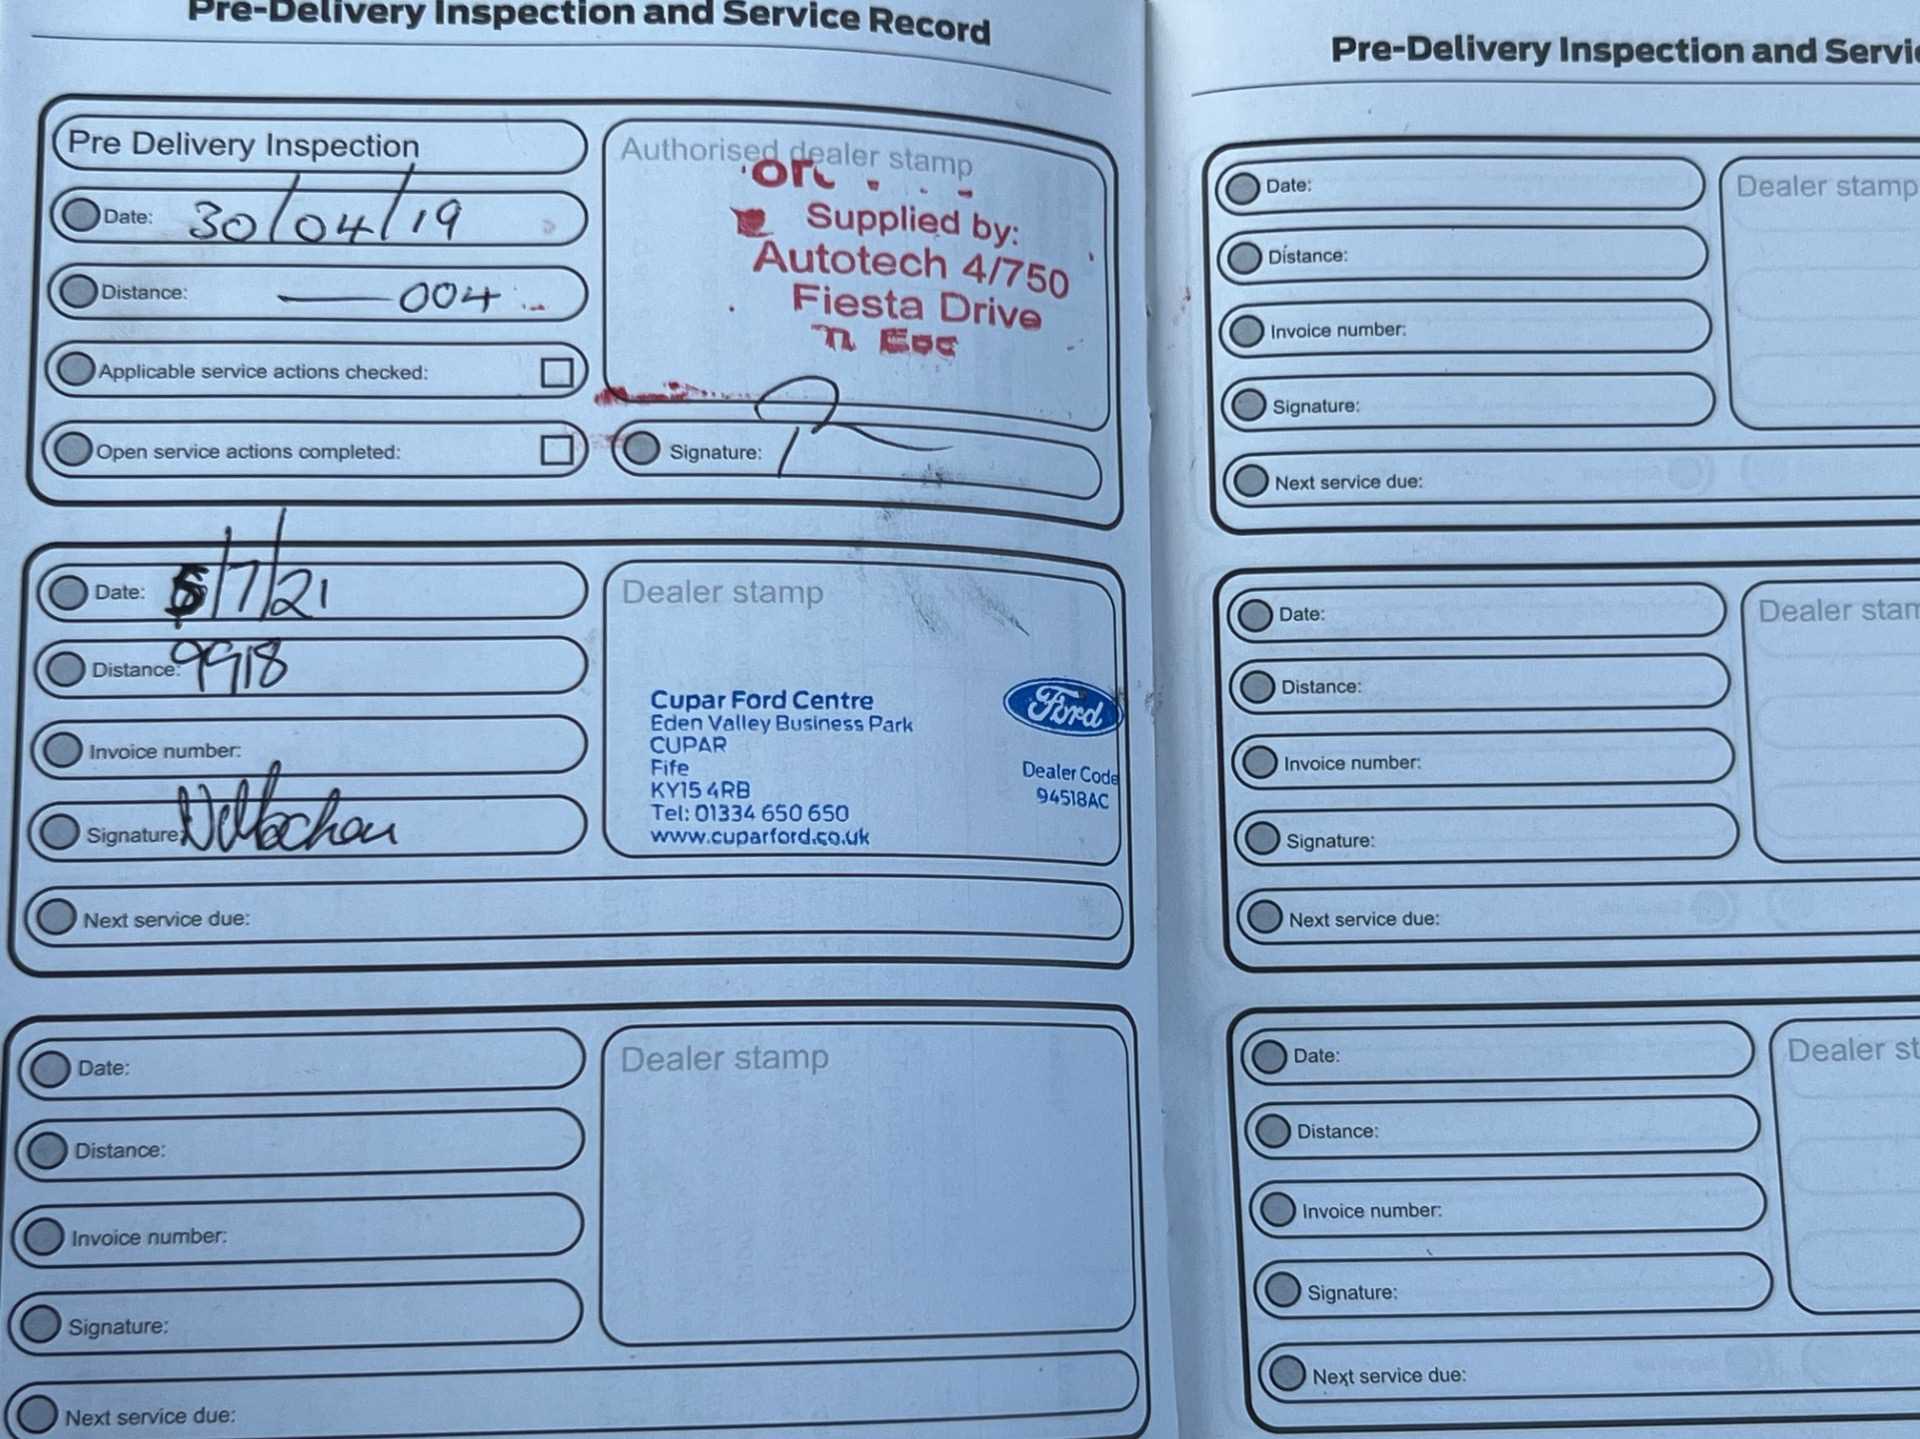 Pre-Delivery Inspection and Service Record
Pre Delivery Inspection
Date: 30/04/19
Distance: —004
Applicable service actions checked:
Open service actions completed:
Authorised dealer stamp
Supplied by:
Autotech 4/750
Fiesta Drive
Signature:
Date: 5/7/21
Distance: 9918
Invoice number:
Signature:
Next service due:
Dealer stamp
Cupar Ford Centre
Eden Valley Business Park
CUPAR
Fife
KY15 4RB
Tel: 01334 650 650
www.cuparford.co.uk
Ford
Dealer Code
94518AC
Date:
Distance:
Invoice number:
Signature:
Next service due:
Dealer stamp
Pre-Delivery Inspection and Servic
Date:
Distance:
Invoice number:
Signature:
Next service due:
Dealer stamp
Date:
Distance:
Invoice number:
Signature:
Next service due:
Dealer stam
Date:
Distance:
Invoice number:
Signature:
Next service due:
Dealer st